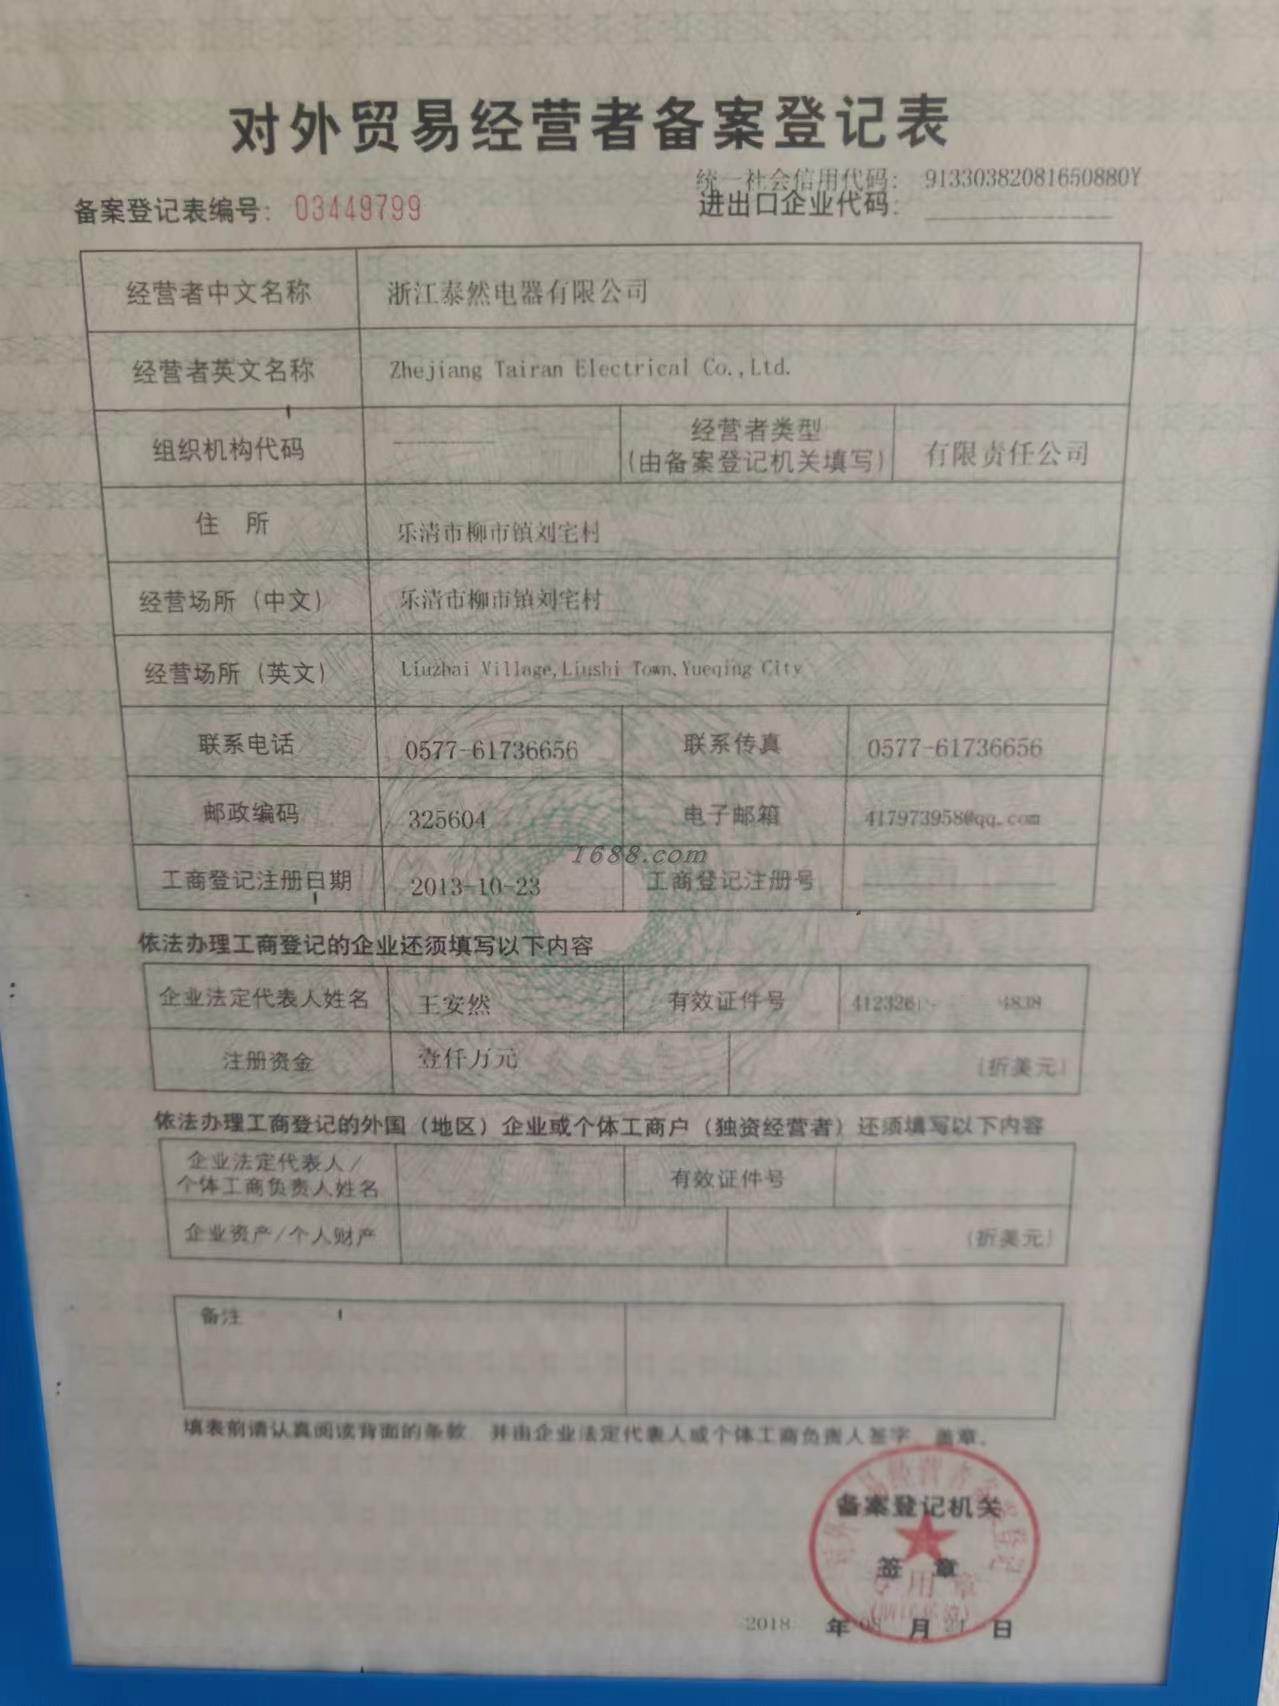 对外贸易经营者备案登记表
统一社会信用代码: 91330382081650880Y
备案登记表编号: 03449799
进出口企业代码:
经营者中文名称 浙江泰然电器有限公司
经营者英文名称 Zhejiang Tairan Electrical Co.,Ltd.
组织机构代码 经营者类型 (由备案登记机关填写) 有限责任公司
住 所 乐清市柳市镇刘宅村
经营场所 (中文) 乐清市柳市镇刘宅村
经营场所 (英文) Liuzhai Village,Liushi Town,Yueqing City
联系电话 0577-61736656 联系传真 0577-61736656
邮政编码 325604 电子邮箱 417973958@qq.com
1688.com
工商登记注册日期 2013-10-23 工商登记注册号
依法办理工商登记的企业还须填写以下内容
企业法定代表人姓名 王安然 有效证件号 412326 4838
注册资金 壹仟万元 (折美元)
依法办理工商登记的外国(地区)企业或个体工商户(独资经营者)还须填写以下内容
企业法定代表人/
个体工商负责人姓名 有效证件号
企业资产/个人财产 (折美元)
备注
填表前请认真阅读背面的条款,并由企业法定代表人或个体工商负责人签字、盖章。
备案登记机关
签 章
专用章
2018 年 08 月 日